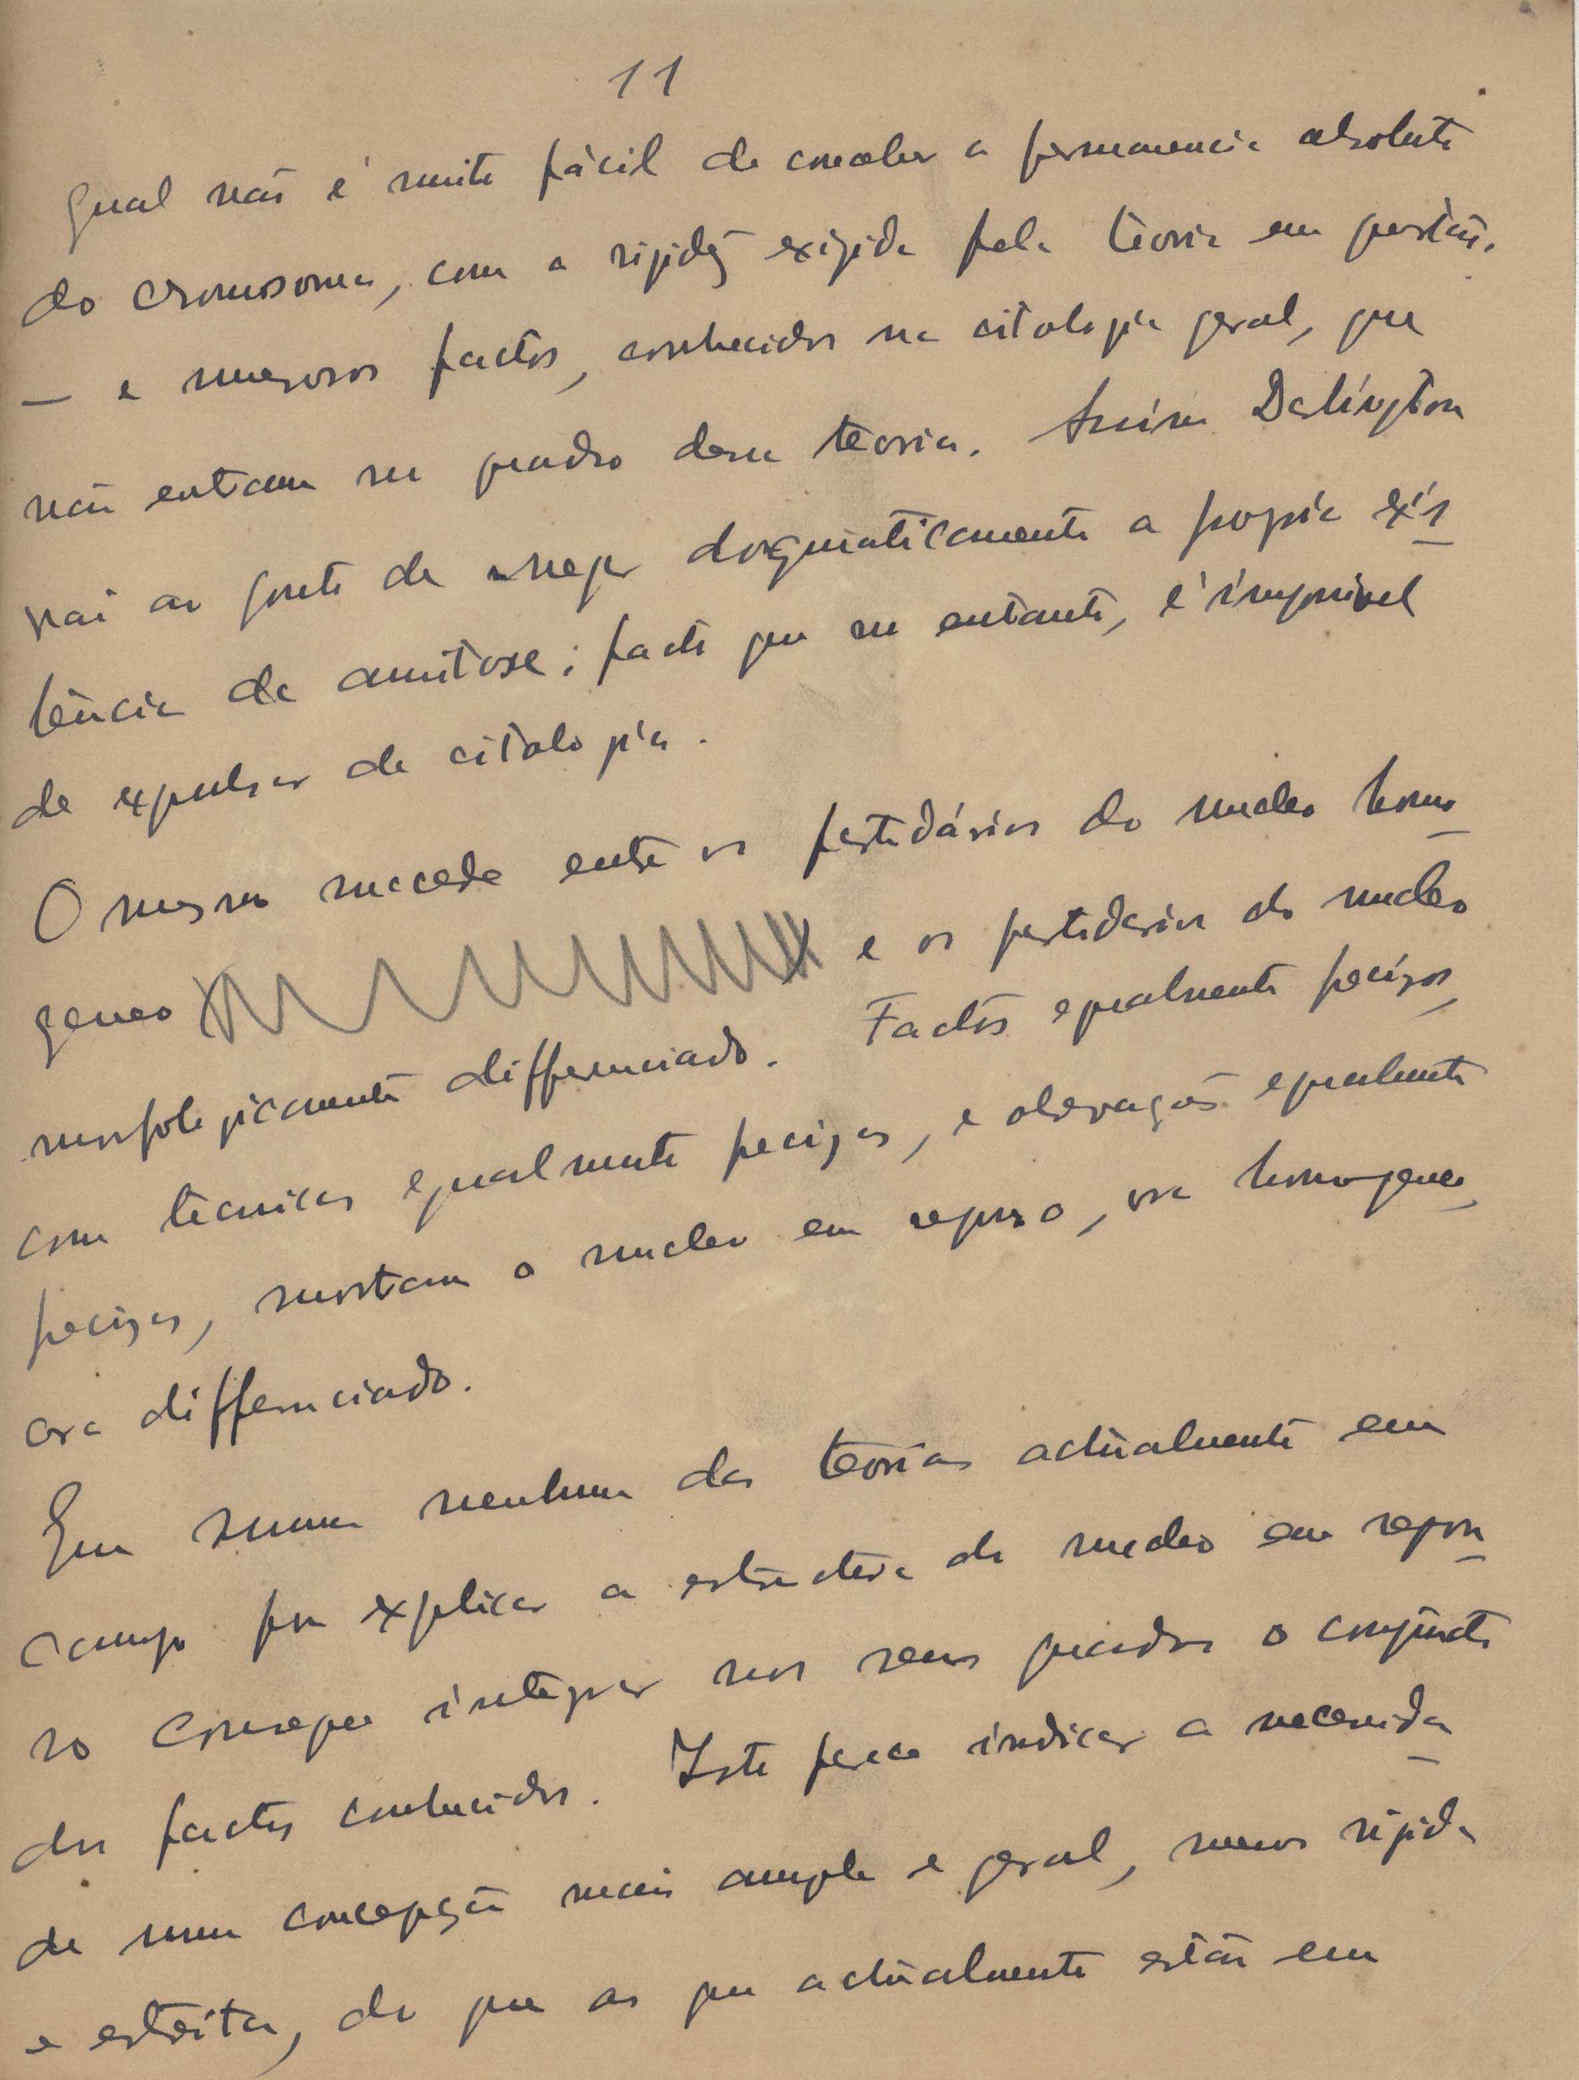 11
qual não é muito fácil de conceber a permanencia absoluta
do cromosoma, com a rigidez exigida pela teoria em questão.
— e numerosos factos, conhecidos na citologia geral, que
não entram no quadro dessa teoria. Assim Darlington
vai ao ponto de negar dogmaticamente a propria exis
tência da amitose; facto que no entanto, é impossivel
de expulsar da citologia.
O mesmo succede entre os partidários do nucleo homo
geneo e os partidarios do nucleo
morfologicamente differenciado. Factos egualmente precizos,
com tecnicas egualmente precizas, e observações egualmente
precizas, mostram o nucleo em repouso, ora homogeneo,
ora differenciado.
Em suma nenhuma das teorias actualmente em
campo para explicar a estructura do nucleo em repou
so consegue integrar nos seus quadros o conjuncto
dos factos conhecidos. Isto parece indicar a necessida
de numa concepção mais ampla e geral, menos rigida
e estreita, do que as que actualmente estão em